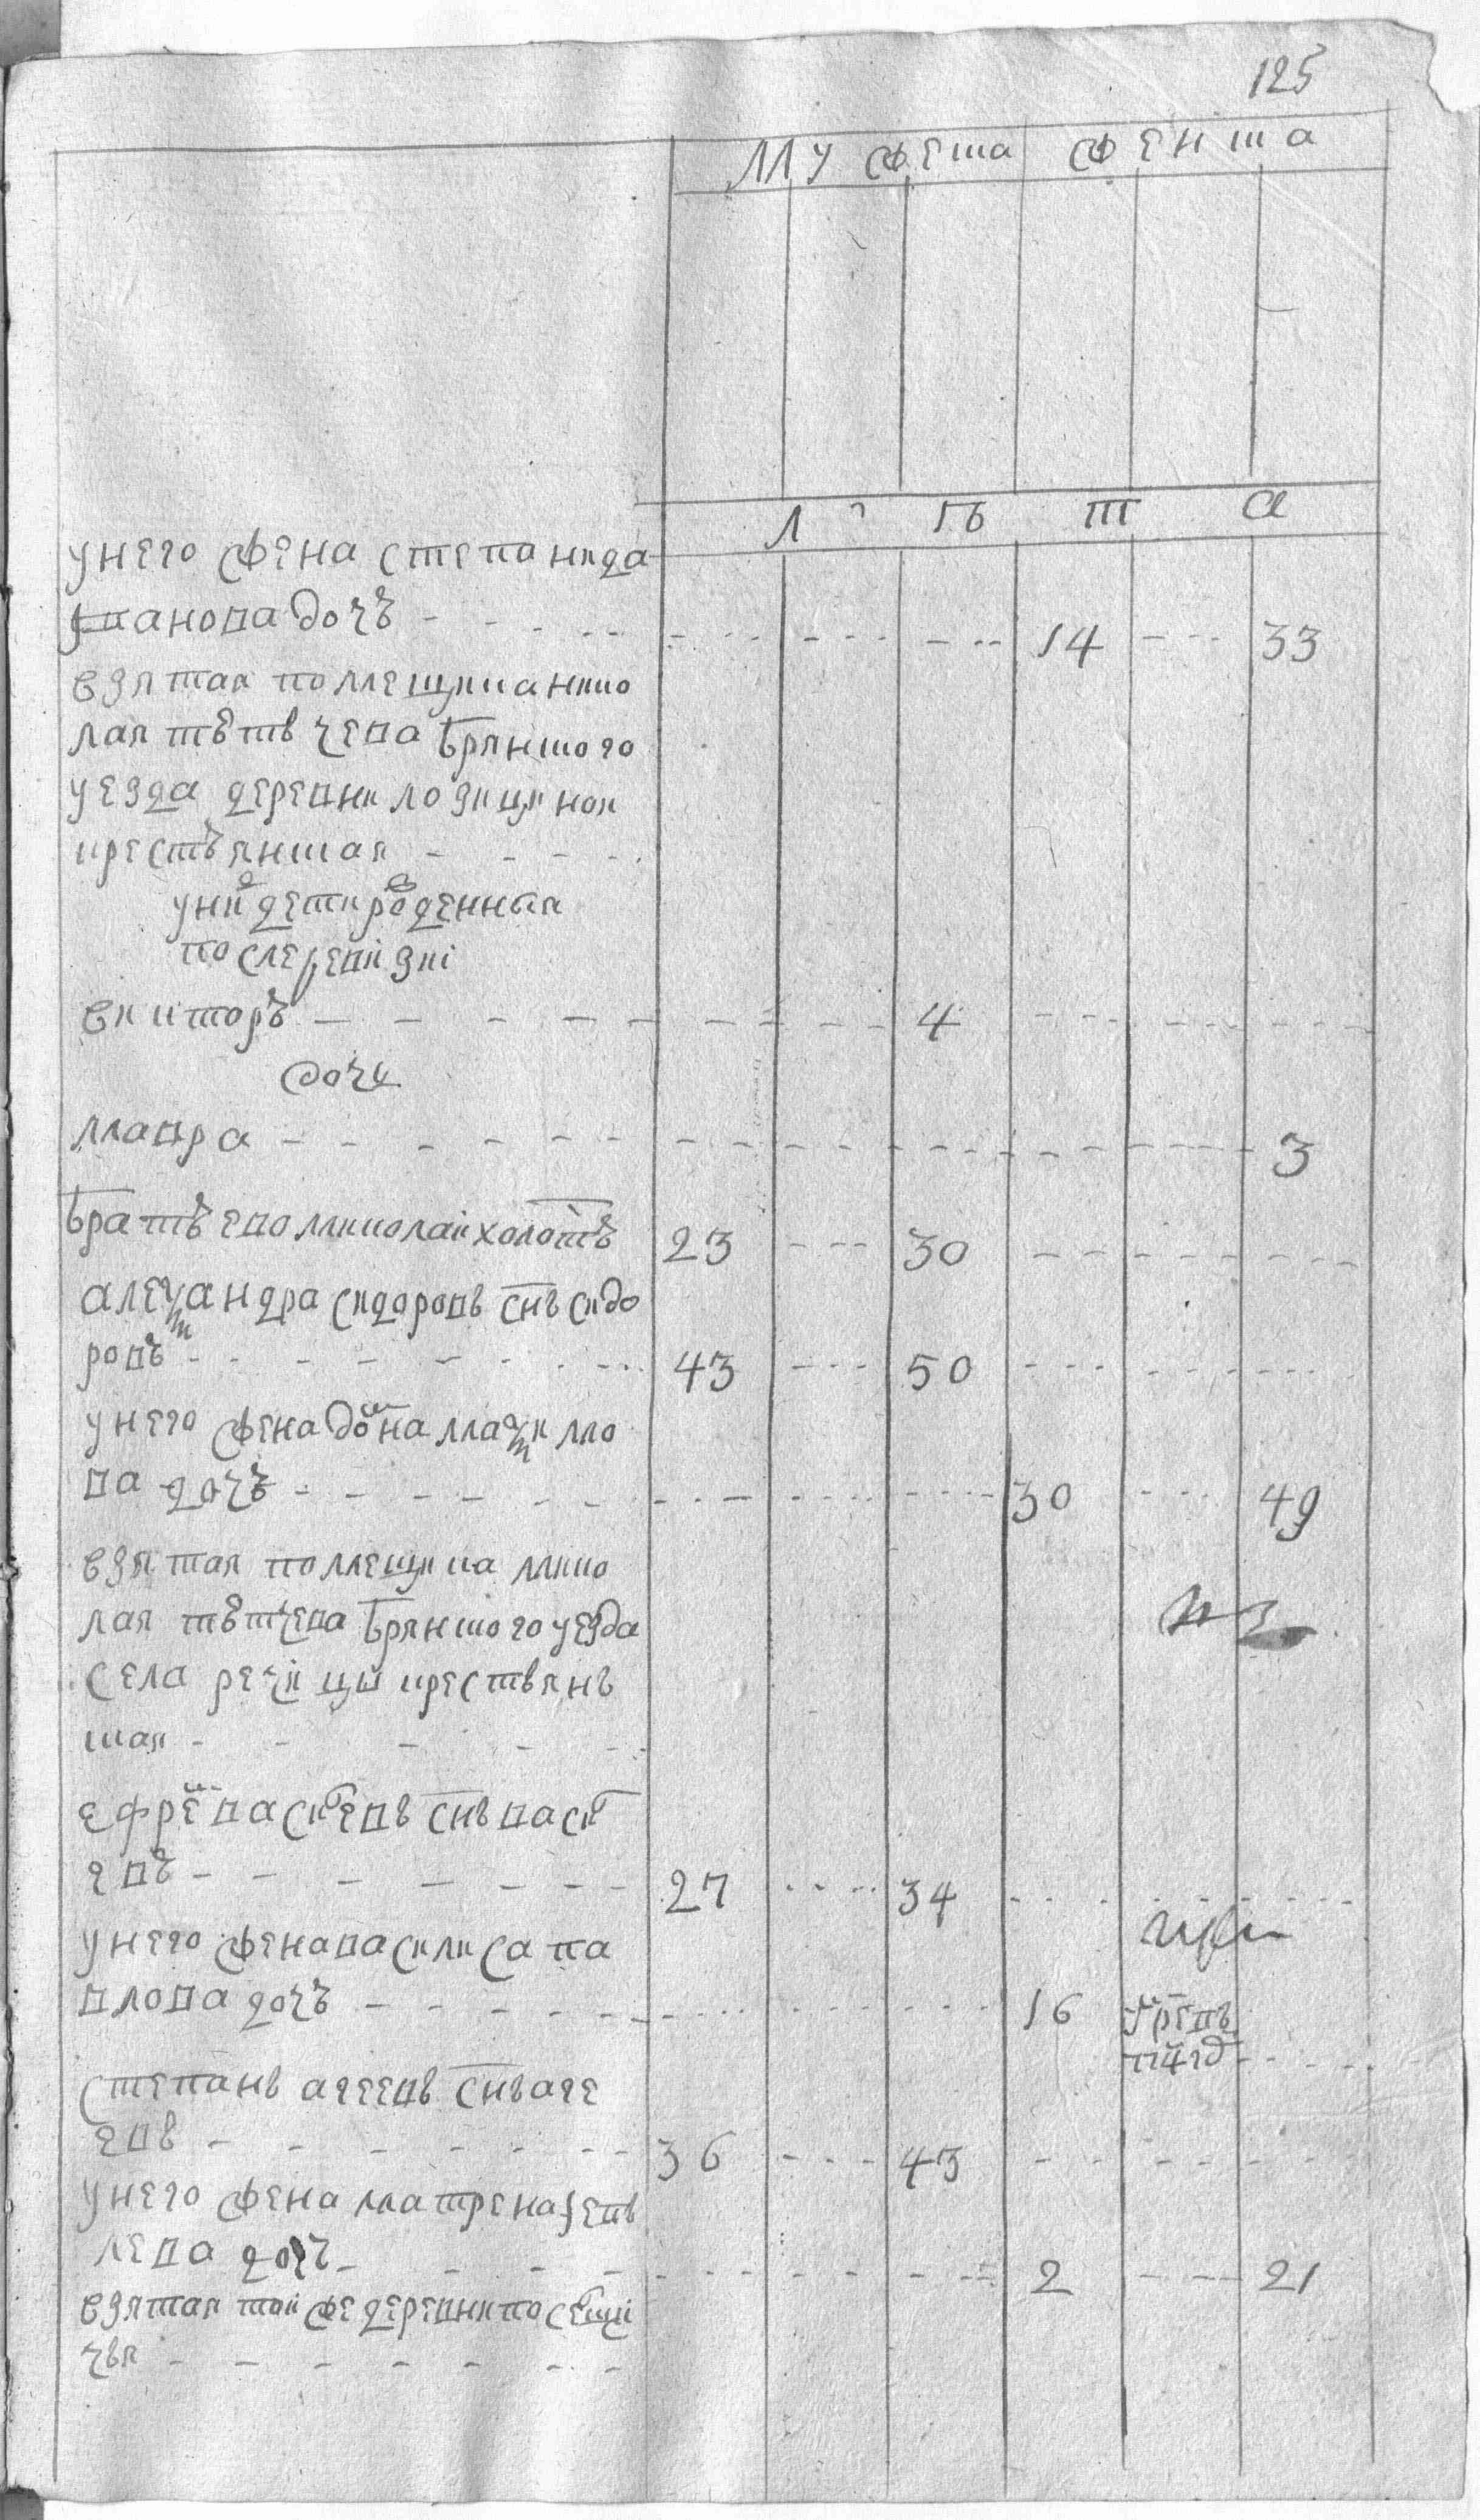 125
мужеска женска
л е т а
у него жена степанида
дочь 14 33
взятая помещика нико
лая тютчева брянского
уезда деревни лозицкой
крестьянская
у них дети рожденныя
после ревизии
виктор 4
дочь
мавра 3
брат ево николай холост 23 30
александра сидоров снъ сидо
ров 43 50
у него жена домна макимо
ва дочь 30 49
взятая помещика нико
лая тютчева брянского уезда
села речицы крестьянь
ская
ефрем васильев снъ василь
евъ 27 34
у него жена василиса па
влова дочь 16
степанъ агеевъ снъ аге
евъ 36 43
у него жена матрена
лева дочь 2 21
взятая той же деревни